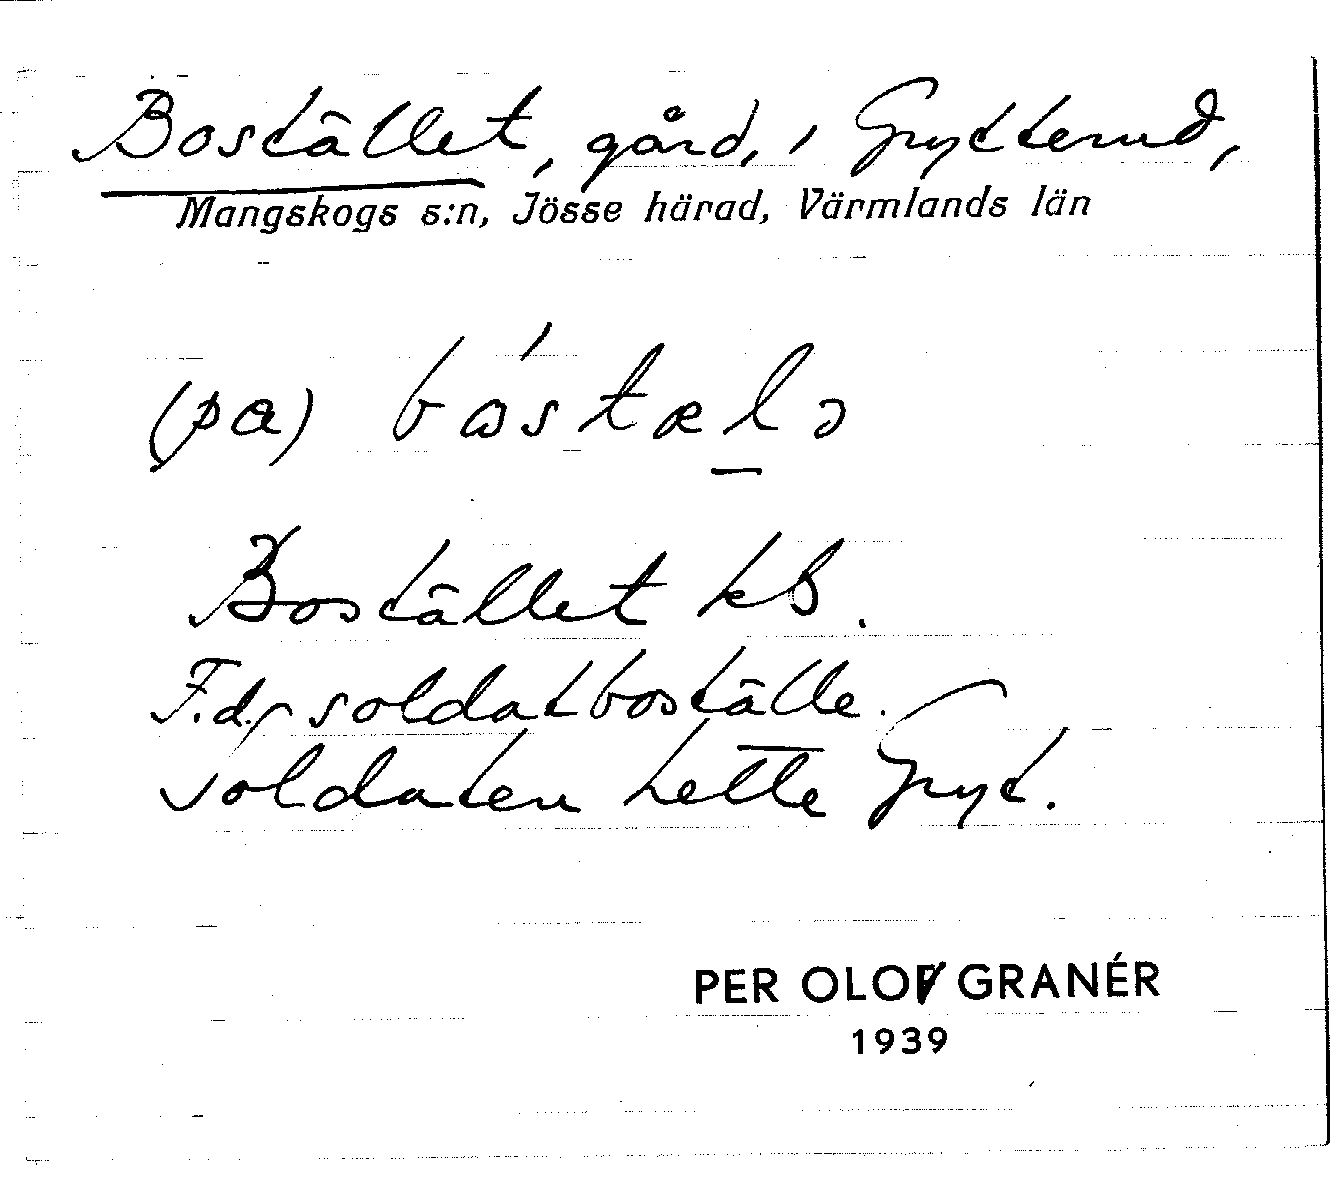 Bostället, gård, i Grytterud,
Mangskogs s:n, Jösse härad, Värmlands län
(pa)
Bostället kB.
F.d. soldatboställe.
Soldaten hette Gryt.
PER OLOV GRANÉR
1939